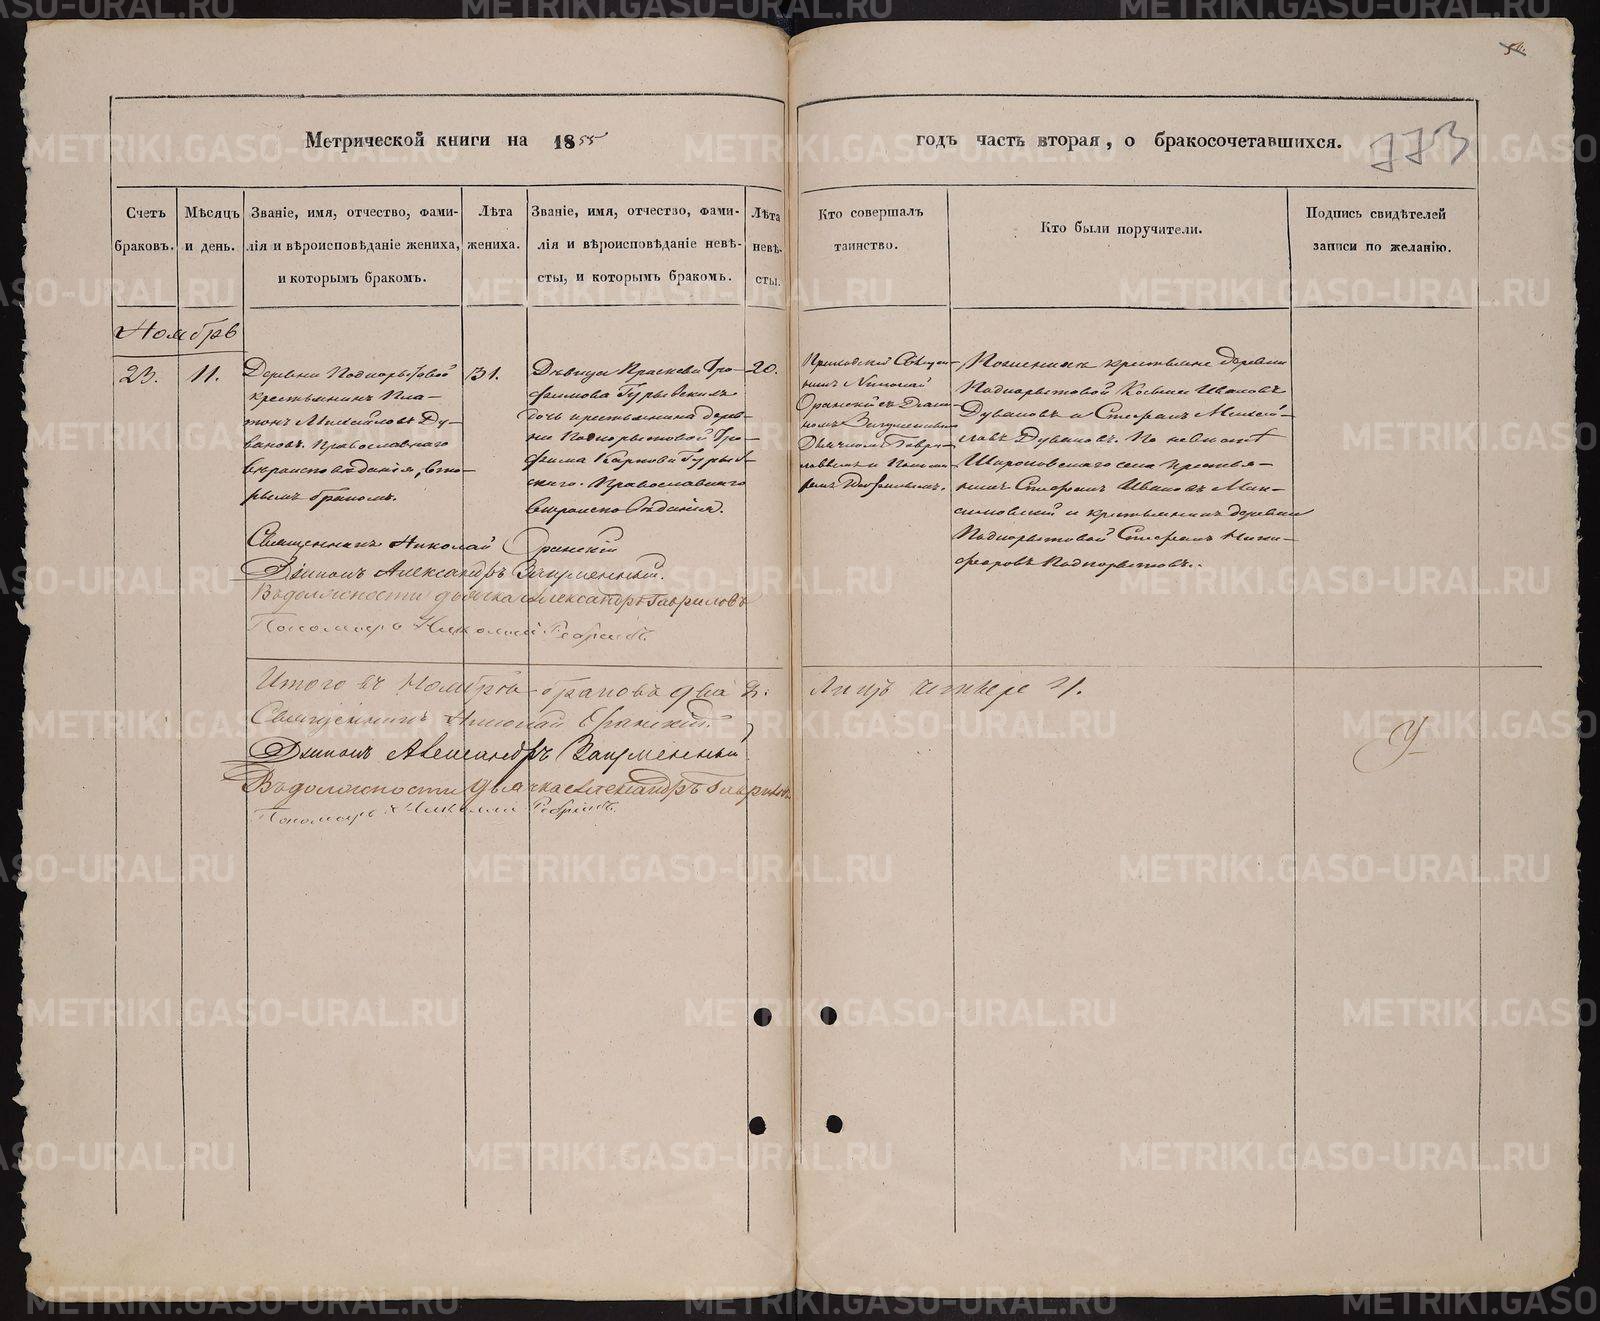 Метрической книги на 1855
годъ часть вторая, о бракосочетавшихся.
773
Счетъ браковъ.
Мѣсяцъ и день.
Званіе, имя, отчество, фами-
лія и вѣроисповѣданіе жениха,
и которымъ бракомъ.
Лѣта
жениха.
Званіе, имя, отчество, фами-
лія и вѣроисповѣданіе невѣ-
сты, и которымъ бракомъ.
Лѣта
невѣ-
сты.
Кто совершалъ
таинство.
Кто были поручители.
Подпись свидѣтелей
записи по желанію.
Ноябрь
23.
11.
Деревни Подкорытовой
крестьянинъ Пла-
тонъ Михайловъ Ду-
вановъ. Православнаго
вѣроисповѣданія, вто-
рымъ бракомъ.
31.
Дѣвица Праскева Тро-
фимова Гурьевскихъ
дочь крестьянина дерев-
ни Подкорытовой Тро-
фима Карпова Гурьев-
скаго. Православнаго
вѣроисповѣданія.
20.
Приходскій Священ-
никъ Николай
Оранскій съ Діако-
номъ
Дьячкомъ Гаври-
ловымъ и Понома-
ремъ
По женихѣ крестьяне деревни
Подкорытовой Козьма Ивановъ
Дувановъ и Стефанъ Михай-
ловъ Дувановъ. По невѣстѣ
Широковскаго села крестья-
нинъ Стефанъ Ивановъ Мак-
симовскій и крестьянинъ деревни
Подкорытовой Стефанъ Ники-
форовъ Подкорытовъ.
Священникъ Николай Оранскій
Діаконъ Александръ
Въ должности дьячка Александръ Гавриловъ
Пономарь Николай
Итого въ Ноябрѣ браковъ два 2.
Лицъ четыре 4.
Священникъ Николай Оранскій.
Діаконъ Александръ
Въ должности дьячка Александръ Гавриловъ
Пономарь Николай
METRIKI.GASO-URAL.RU